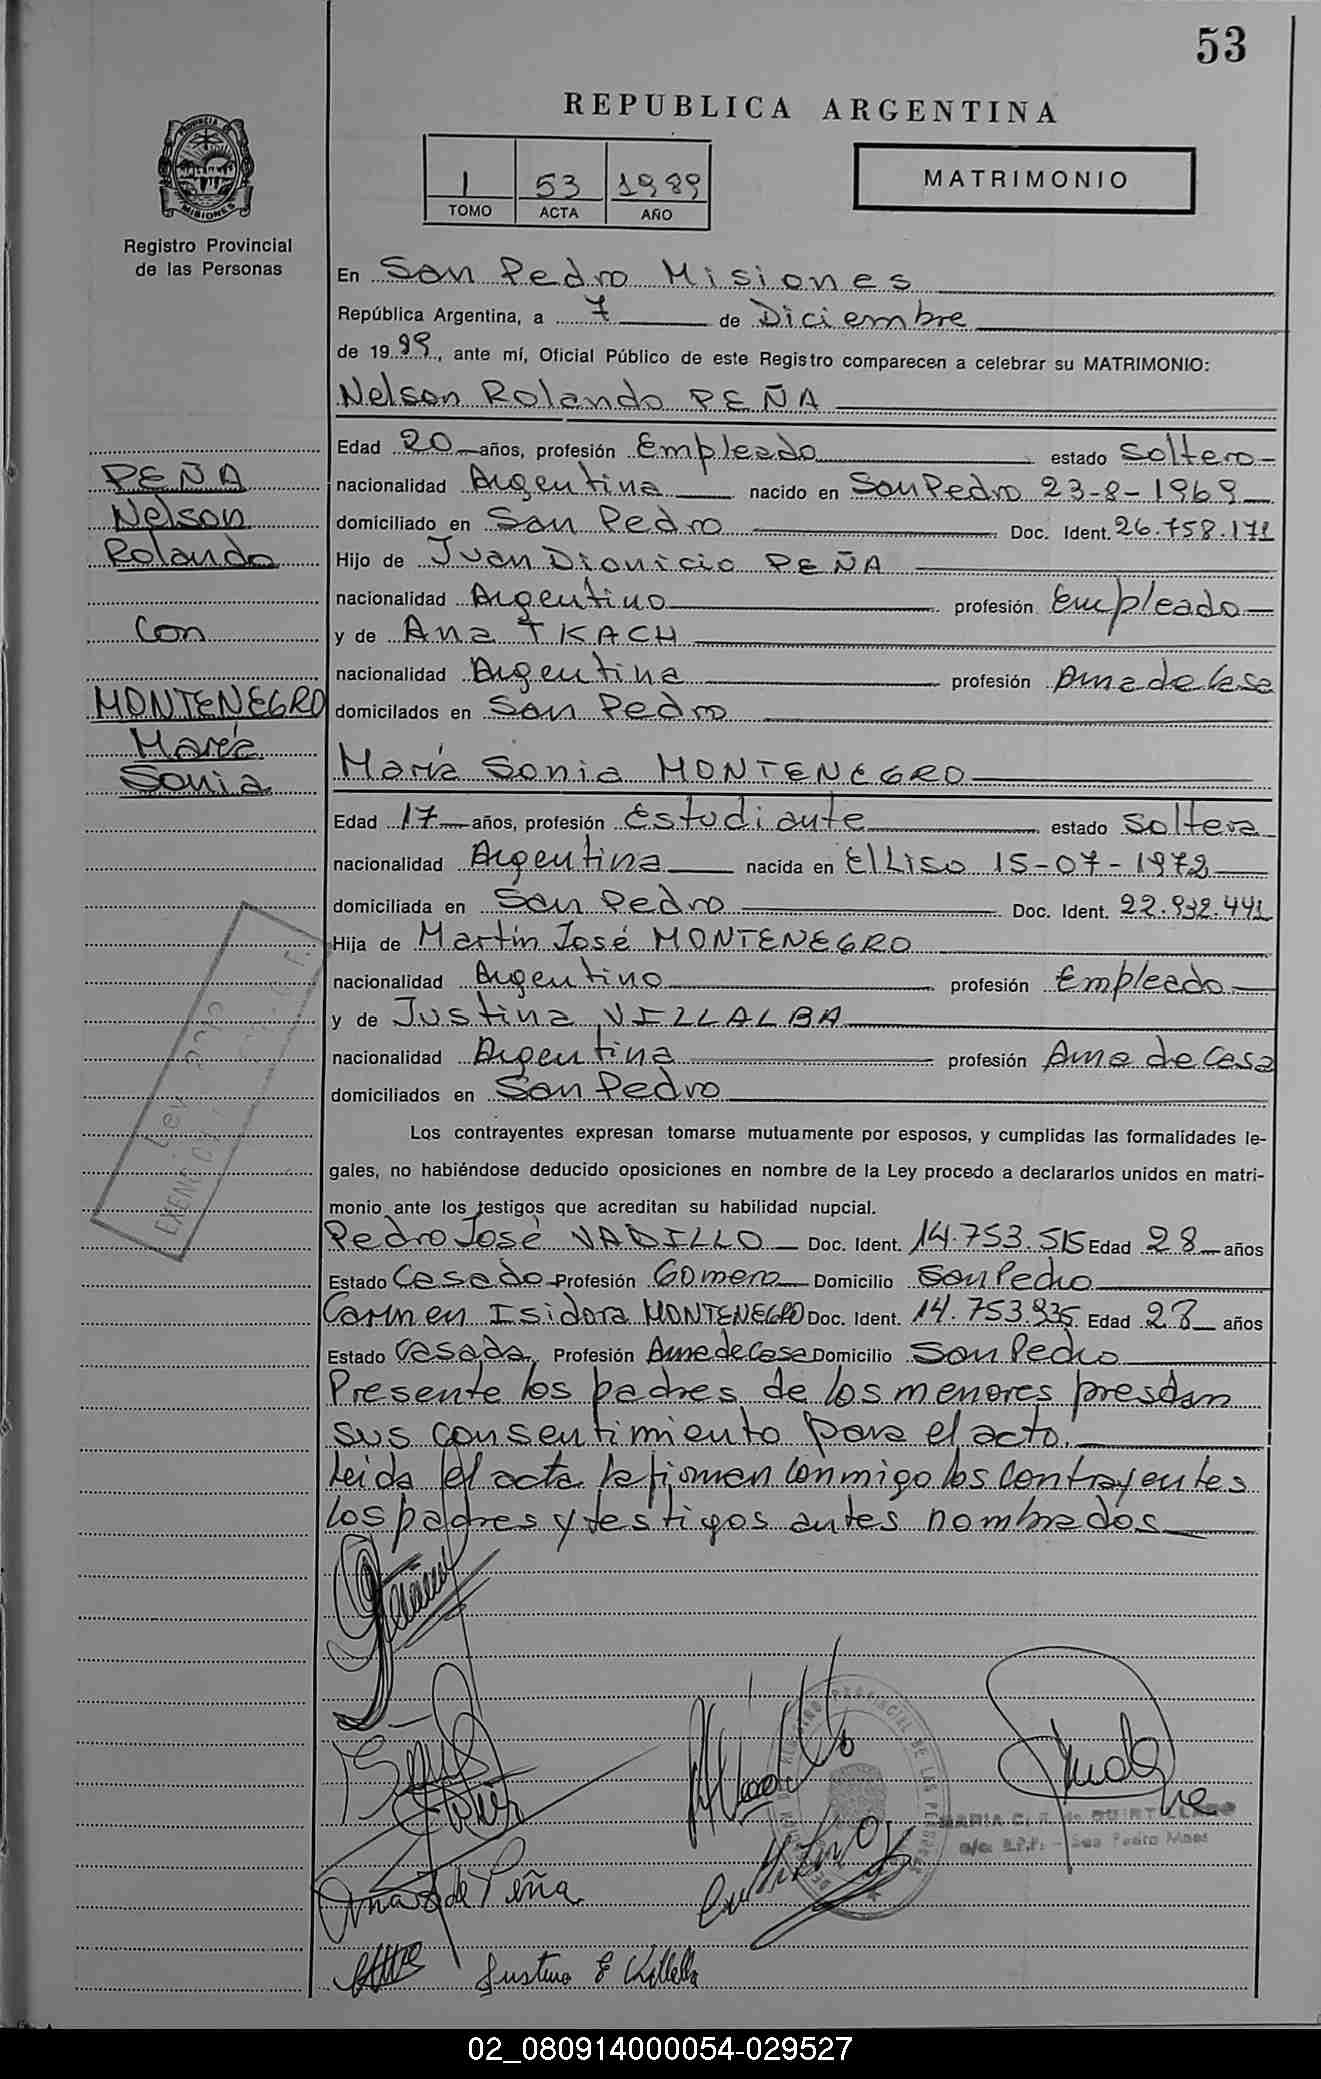 53
REPUBLICA ARGENTINA
1 53 1989
TOMO ACTA AÑO
MATRIMONIO
PROVINCIA DE MISIONES
Registro Provincial
de las Personas
En San Pedro Misiones
República Argentina, a 7 de Diciembre
de 1989, ante mí, Oficial Público de este Registro comparecen a celebrar su MATRIMONIO:
Nelson Rolando PEÑA
Edad 20 años, profesión Empleado estado Soltero
nacionalidad Argentina nacido en San Pedro 23-8-1969
domiciliado en San Pedro Doc. Ident. 26.758.171
Hijo de Juan Dionicio PEÑA
nacionalidad Argentino profesión Empleado
y de Ana TKACH
nacionalidad Argentina profesión Ama de Casa
domicilados en San Pedro
PEÑA
Nelson
Rolando
Con
MONTENEGRO
María
Sonia
María Sonia MONTENEGRO
Edad 17 años, profesión Estudiante estado Soltera
nacionalidad Argentina nacida en El Liso 15-07-1972
domiciliada en San Pedro Doc. Ident. 22.932.441
Hija de Martín José MONTENEGRO
nacionalidad Argentino profesión Empleado
y de Justina VILLALBA
nacionalidad Argentina profesión Ama de Casa
domiciliados en San Pedro
Los contrayentes expresan tomarse mutuamente por esposos, y cumplidas las formalidades le-
gales, no habiéndose deducido oposiciones en nombre de la Ley procedo a declararlos unidos en matri-
monio ante los testigos que acreditan su habilidad nupcial.
Pedro José VADILLO Doc. Ident. 14.753.515 Edad 28 años
Estado Casado Profesión Gomero Domicilio San Pedro
Carmen Isidora MONTENEGRO Doc. Ident. 14.753.935 Edad 28 años
Estado Casada Profesión Ama de Casa Domicilio San Pedro
Presente los padres de los menores prestan
sus consentimiento para el acto.
Leida el acta la firman conmigo los contrayentes
los padres y testigos antes nombrados
Ley
REGISTRO PROVINCIAL DE LAS PERSONAS
MARIA C. R. de
San Pedro Mnes
Ana T de Peña
Justina E Villalba
02_080914000054-029527